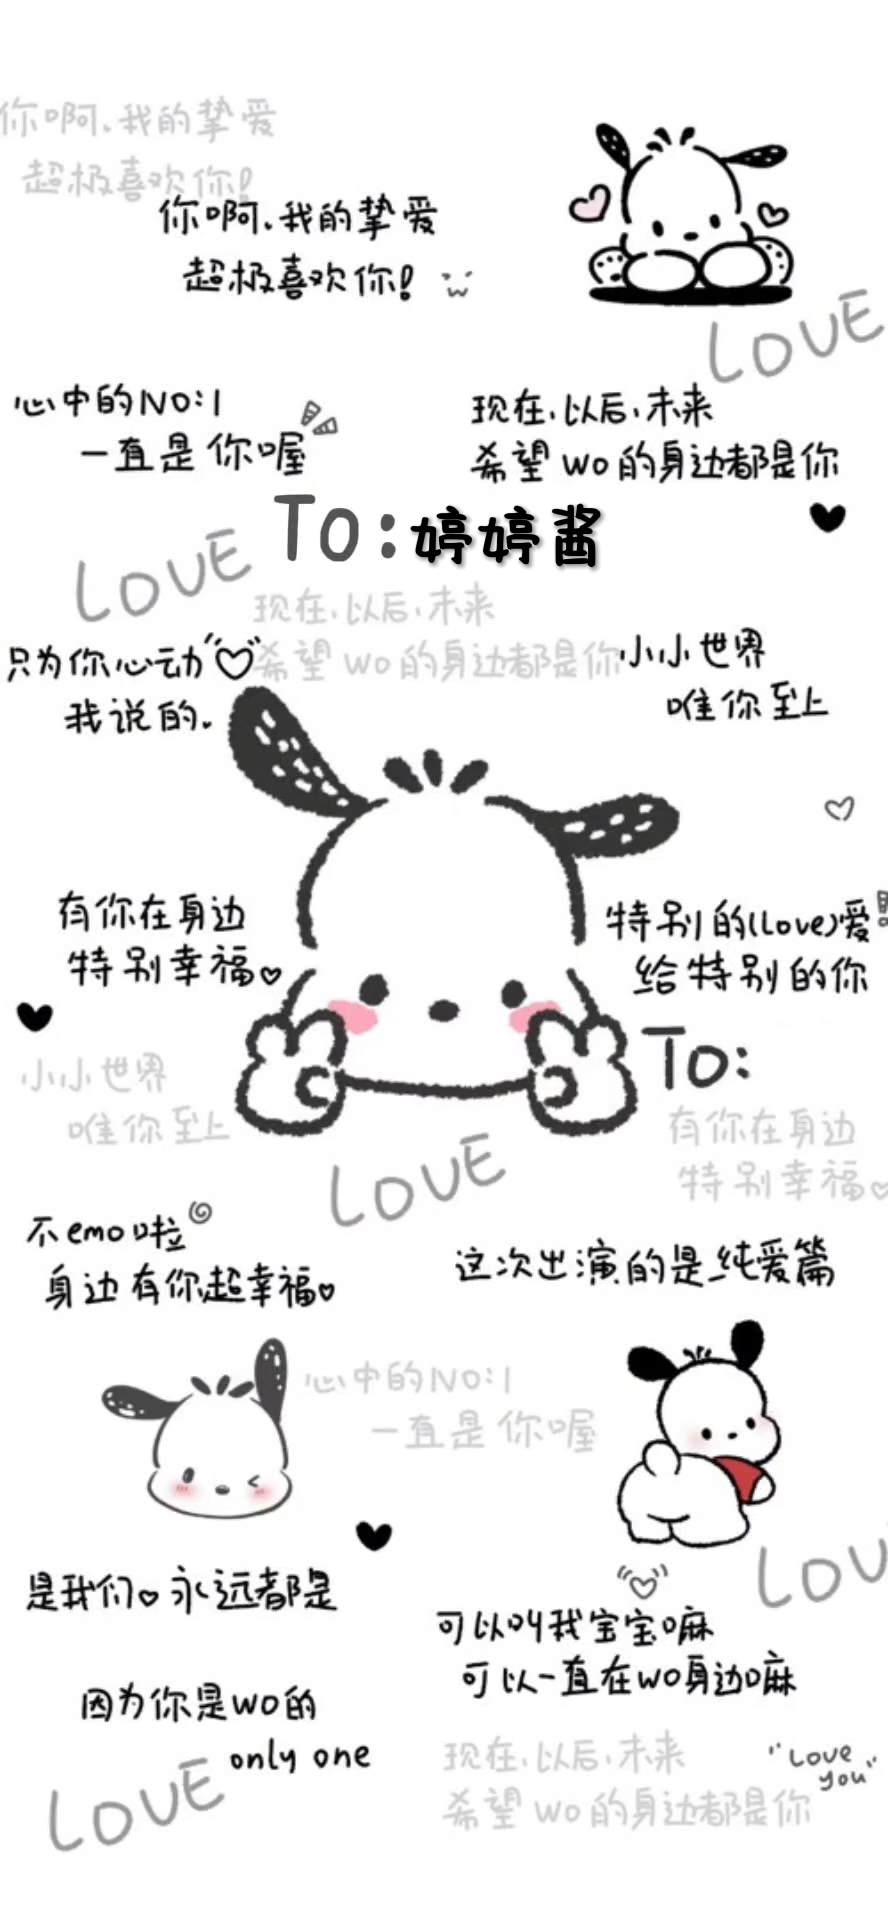 你啊、我的挚爱
超极喜欢你!
你啊、我的挚爱
超极喜欢你!
LOVE
心中的NO:1
一直是你喔
现在、以后、未来
希望wo的身边都是你
To:婷婷酱
LOVE
现在、以后、未来
希望wo的身边都是你
只为你心动
我说的.
小小世界
唯你至上
有你在身边
特别幸福
特别的(Love)爱
给特别的你
To:
小小世界
唯你至上
有你在身边
特别幸福
LOVE
不emo啦
身边有你超幸福
这次出演的是纯爱篇
心中的NO:1
一直是你喔
LOV
是我们 永远都是
可以叫我宝宝嘛
可以一直在wo身边嘛
因为你是wo的
only one
现在、以后、未来
希望wo的身边都是你
"Love
you"
LOVE